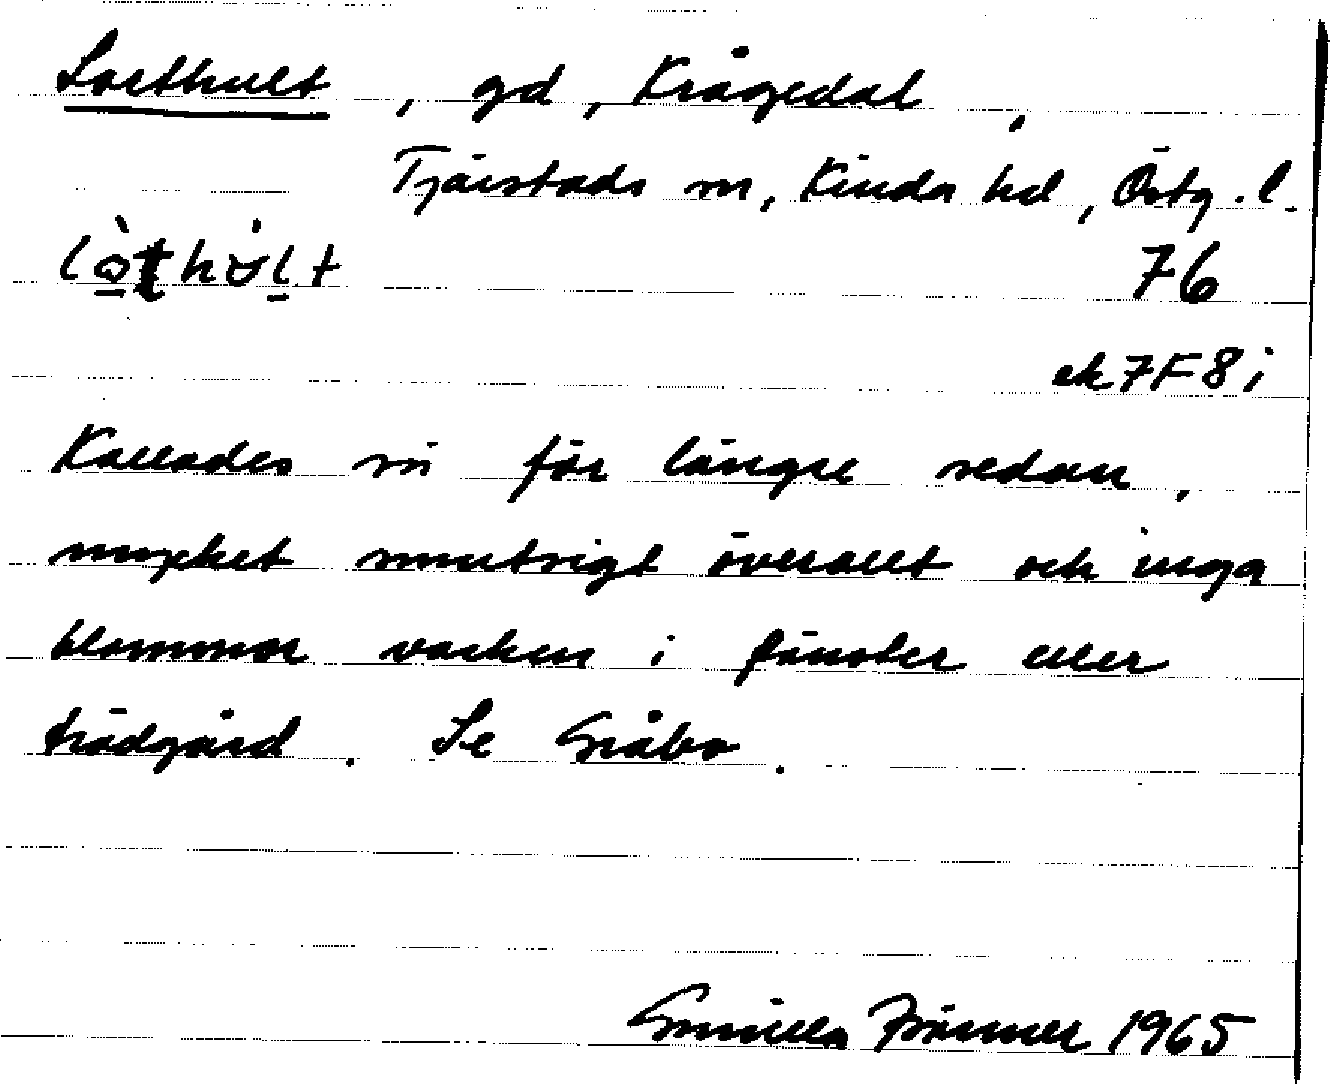 Lorthult, gd, Krågedal,
Tjärstads sn, Kinda hd, Östg.l.
76
ek 7F8i
Kallades så för längre sedan,
mycket smutsigt överallt och inga
blommor varken i fönster eller
trädgård. Se Gråbo.
Gunilla 1965